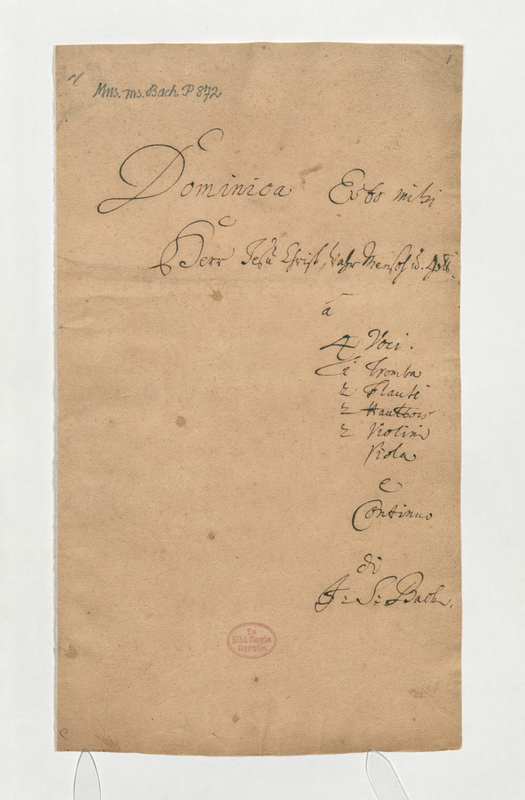 1
Mus. ms. Bach P 872
Dominica Esto mihi
Herr Jesu Christ, wahr Mensch u. Gott.
à
4 Voci.
1 Tromba
2 Flauti
2 Hautbois
2 Violini
Viola
e
Continuo
di
J: S: Bach.
Ex
Bibl. Regia
Berolin.